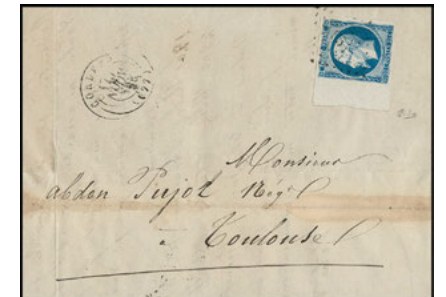 Monsieur
abdon Pujol Nég.t
à
Toulouse